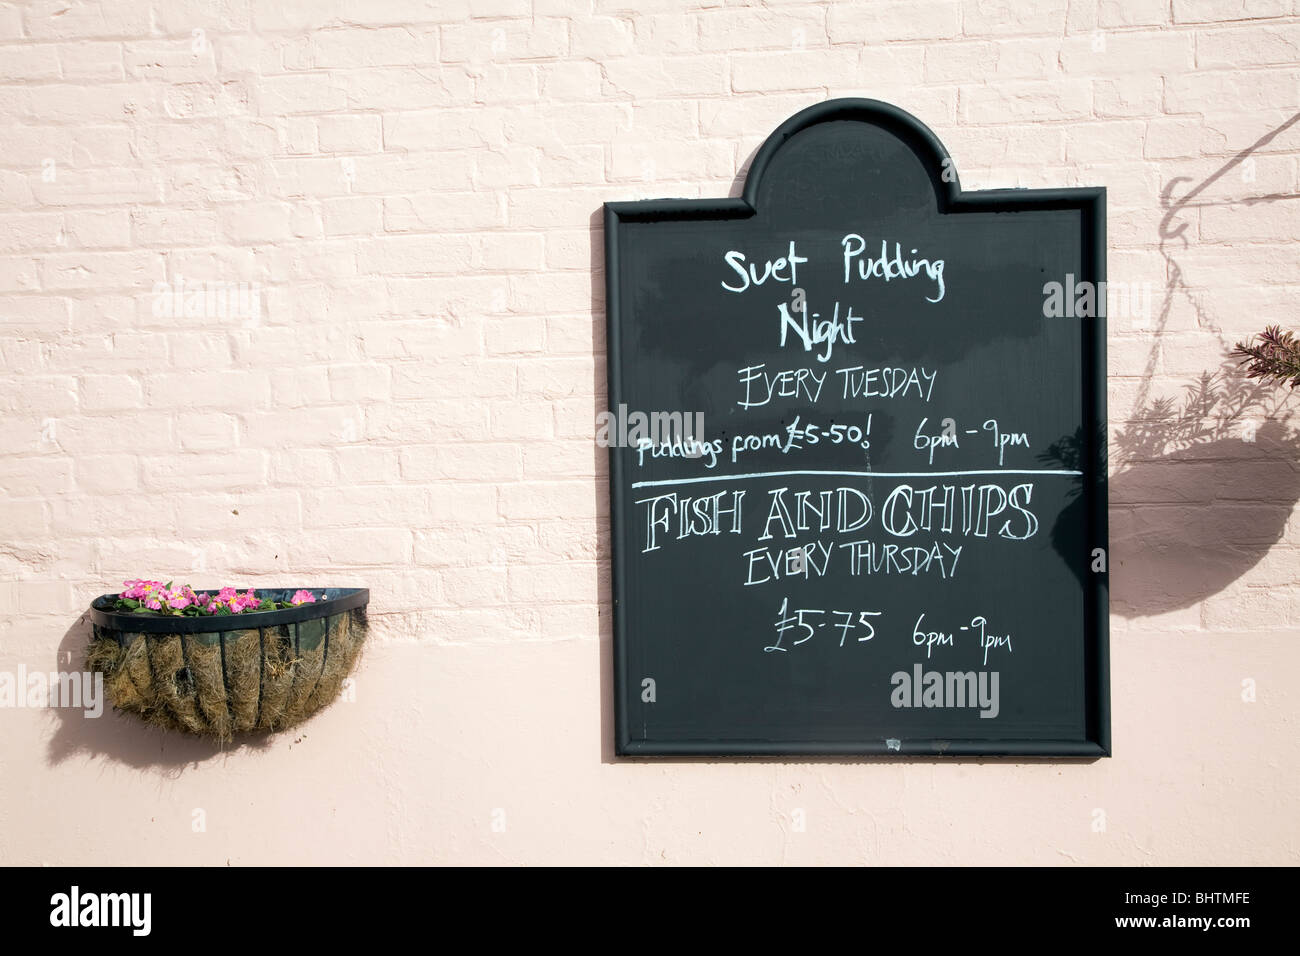 Suet Pudding
Night
EVERY TUESDAY
Puddings from £5-50! 6pm - 9pm
FISH AND CHIPS
EVERY THURSDAY
£5-75 6pm - 9pm
alamy
alamy
Image ID: BHTMFE
www.alamy.com